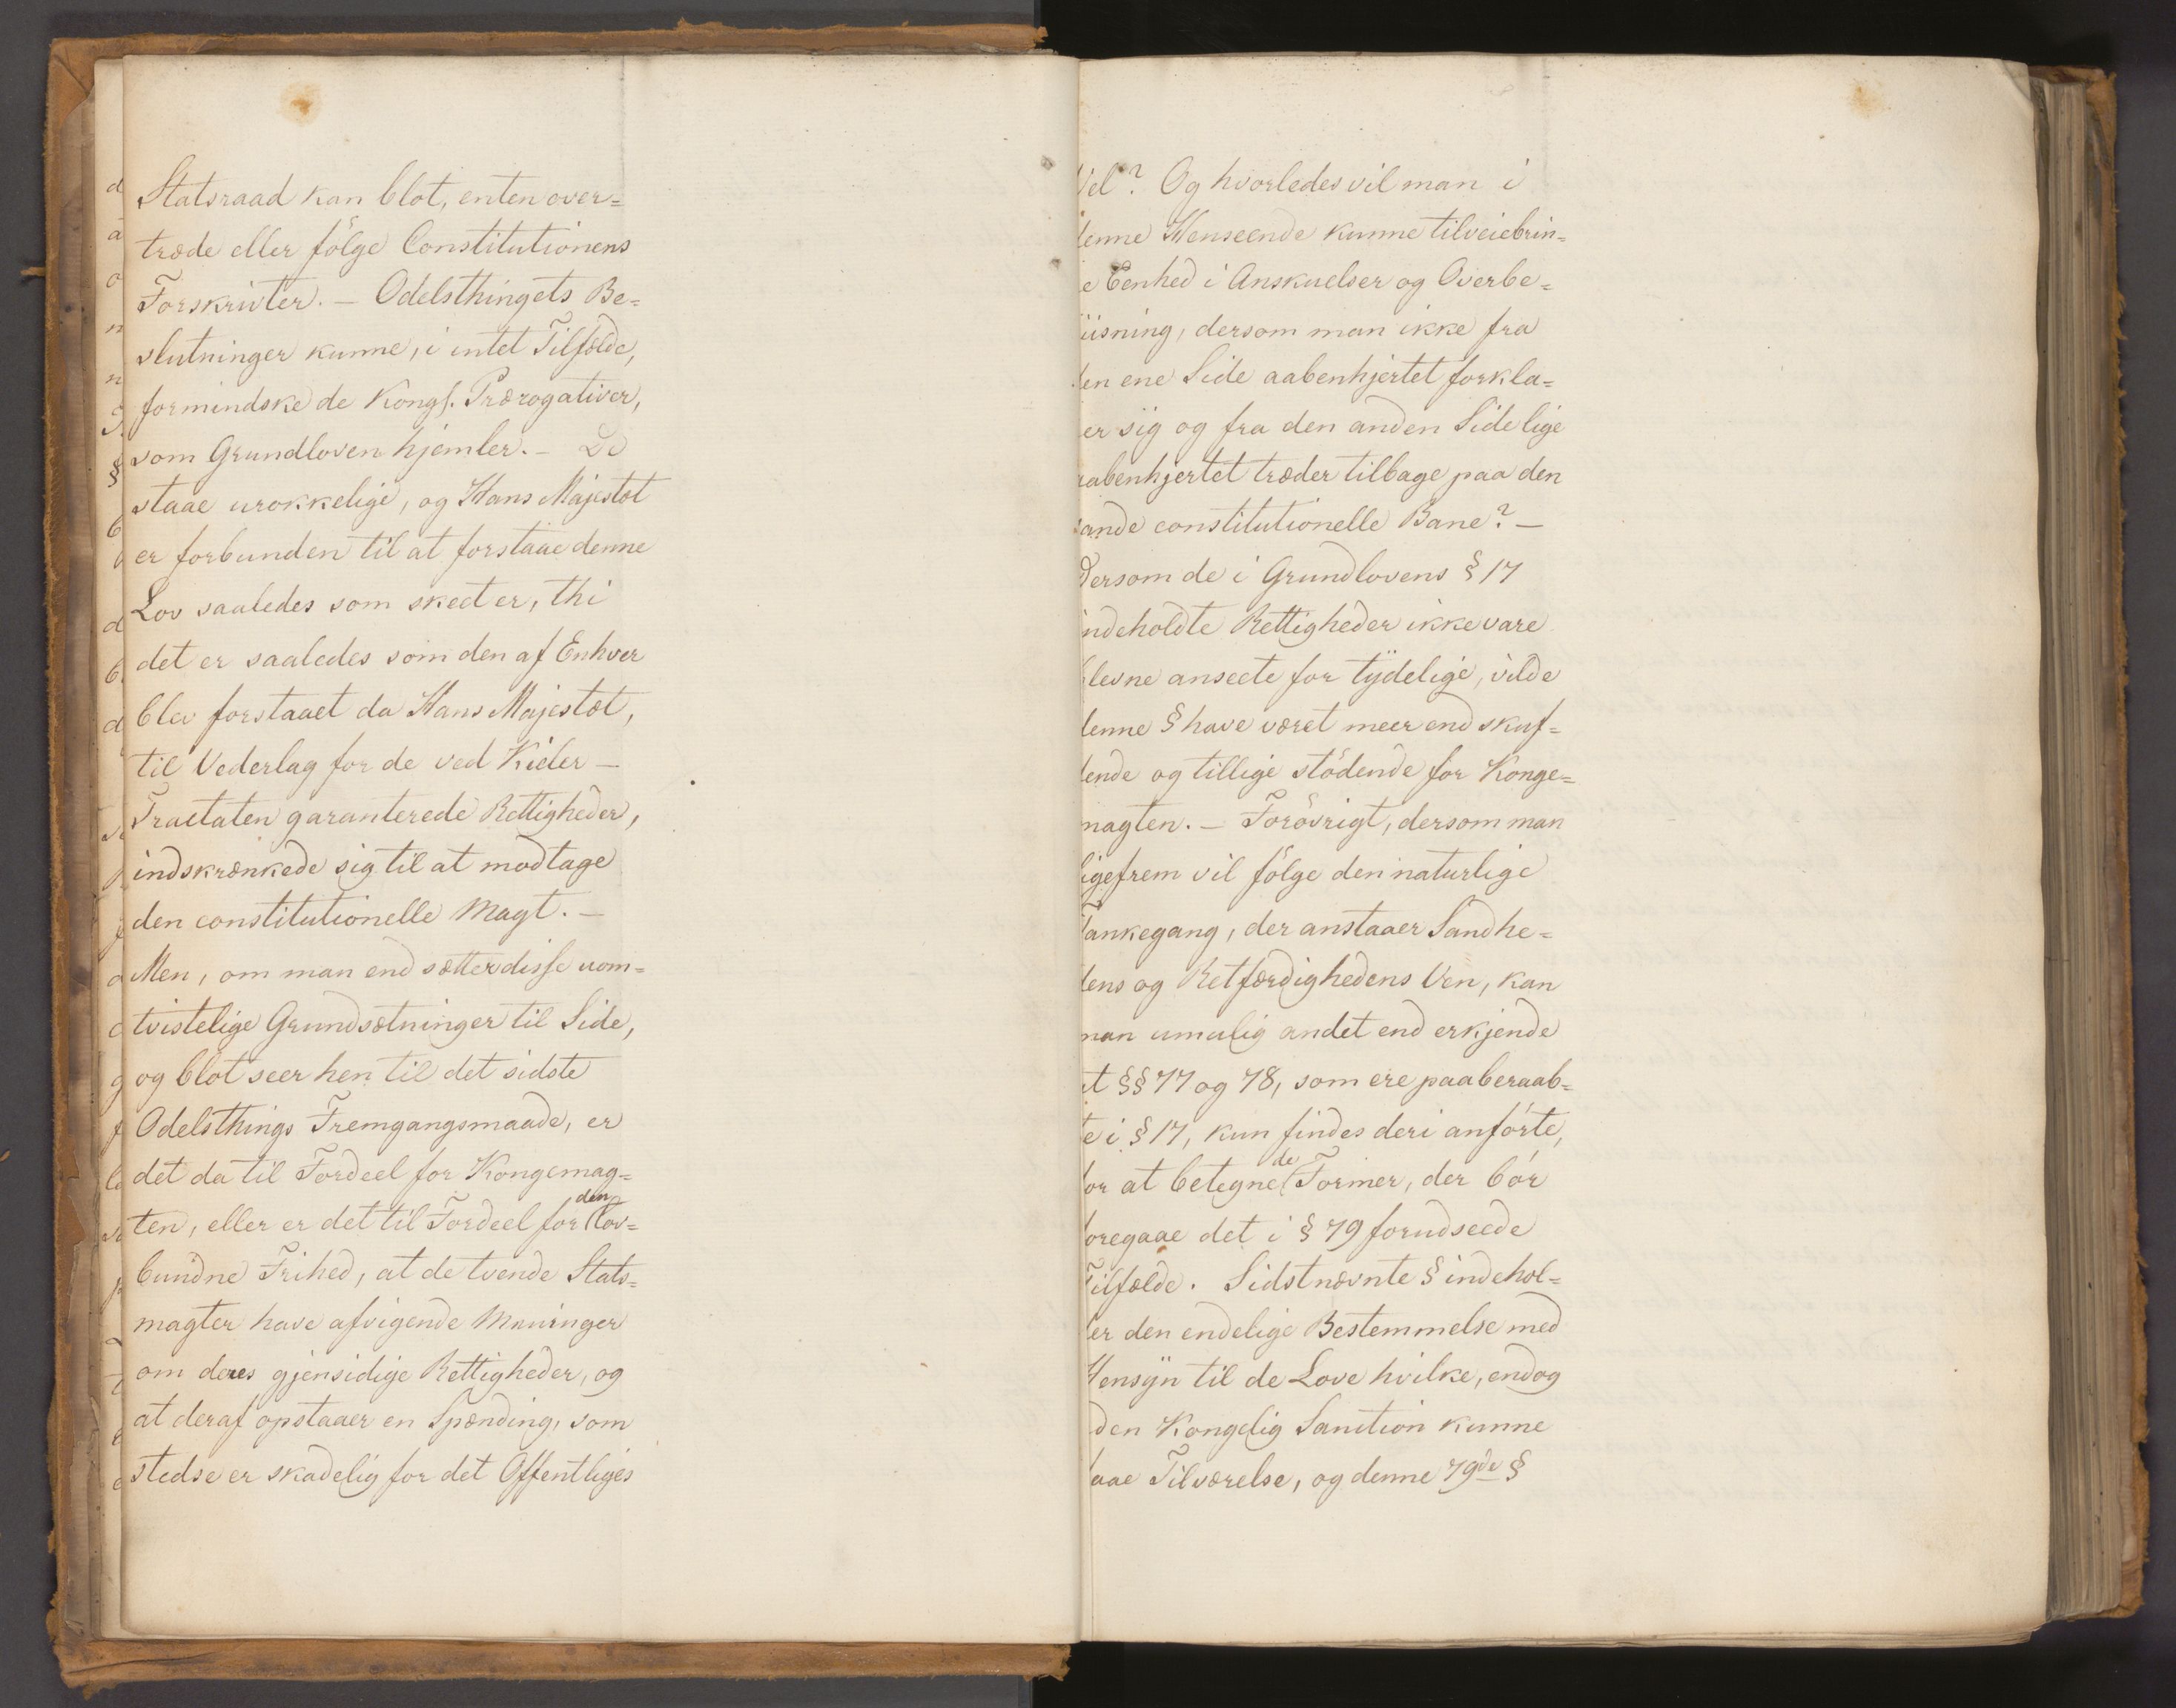 Statsraad kan blot, enten over=
træde eller følge Constitutionens
Forskrivter. — Odelsthingets Be=
slutninger kunne, i intet Tilfælde,
formindske de Kongl. Prærogativer,
som Grundloven hjemler. — De
staae urokkelige, og Hans Majestæt
er forbunden til at forstaae denne
Lov saaledes som skeet er, thi
det er saaledes som den af Enhver
blev forstaaet da Hans Majestæt,
til Vederlag for de ved Kieler —
Tractaten garanterede Rettigheder,
indskrænkede sig til at modtage
den constitutionelle Magt. —
Men, om man end sætter disse uom=
tvistelige Grundsætninger til Side,
og blot seer hen til det sidste
Odelsthings Fremgangsmaade, er
det da til Fordeel for Kongemag=
ten, eller er det til Fordeel for den lov=
bundne Frihed, at de tvende Stats=
magter have afvigende Meninger
om deres gjensidige Rettigheder, og
at deraf opstaaer en Spænding, som
stedse er skadelig for det Offentliges
Vel? Og hvorledes vil man i
denne Henseende kunne tilveiebrin=
e Eenhed i Anskuelser og Overbe=
iisning, dersom man ikke fra
den ene Side aabenhjertet forkla=
er sig og fra den anden Side lige
aabenhjertet træder tilbage paa den
sande constitutionelle Bane? —
Dersom de i Grundlovens § 17
indeholdte Rettigheder ikke vare
blevne anseete for tydelige, vilde
denne § have været meer end skuf=
ende og tillige stødende for Konge=
magten. — Forøvrigt, dersom man
ligefrem vil følge den naturlige
Tankegang, der anstaaer Sandhe=
dens og Retfærdighedens Ven, kan
man umulig andet end erkjende
at §§ 77 og 78, som ere paaberaab=
te i § 17, kun findes deri anførte,
for at betegne de Former, der bør
foregaae det i § 79 forudseede
Tilfælde. Sidstnævnte § indehol=
der den endelige Bestemmelse med
Hensyn til de Love hvilke, endog
den Kongelig Sanction kunne
faae Tilværelse, og denne 79de §